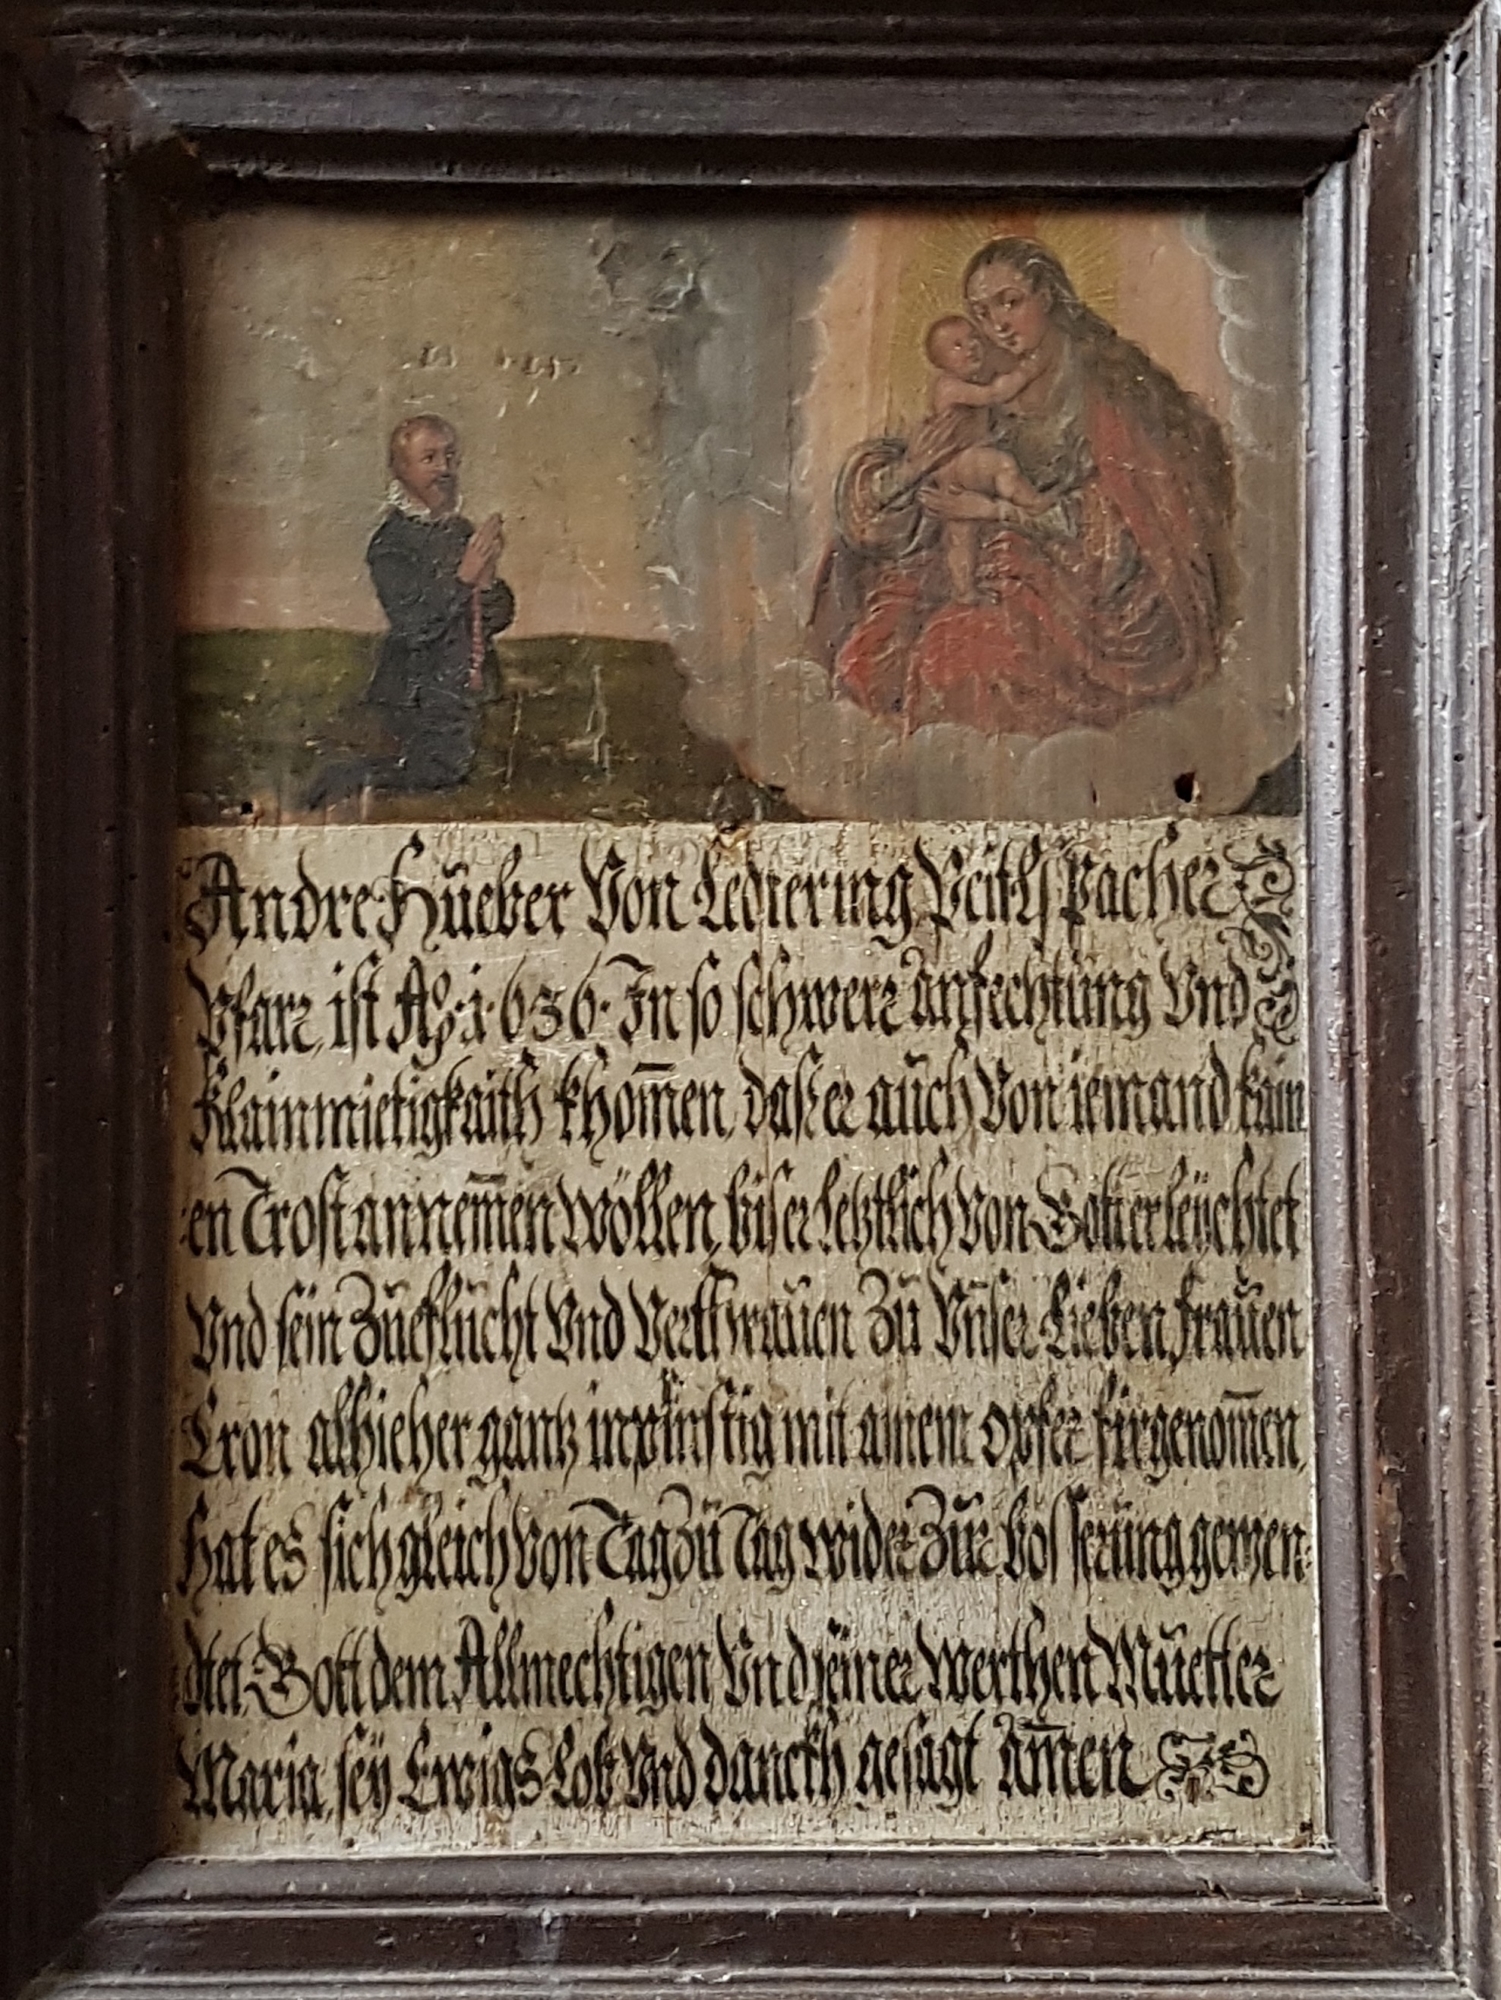 Andre Hueber Von Ledtering Veiths Pacher
Pfarr, ist Aō. 1.636. In so schwere anfechtung Vnd
Klainmietigkaith khom̄en, das er auch Von iemand kain
en Trost annem̄en wöllen, bis er letztlich Von Gott erleüchtet
Vnd sein Zueflucht Vnd Verthrauen Zu Vnser Lieben Frauen
Cron alhieher gantz inprinstig mit ainem opfer firgenom̄en,
Hat es sich gleich Von Tag Zu Tag wider Zur bosserung gewen-
dtet, Gott dem Allmechtigen Vnd seiner werthen Muetter
Maria, seÿ Ewigs Lob Vnd danckh gesagt Am̄en